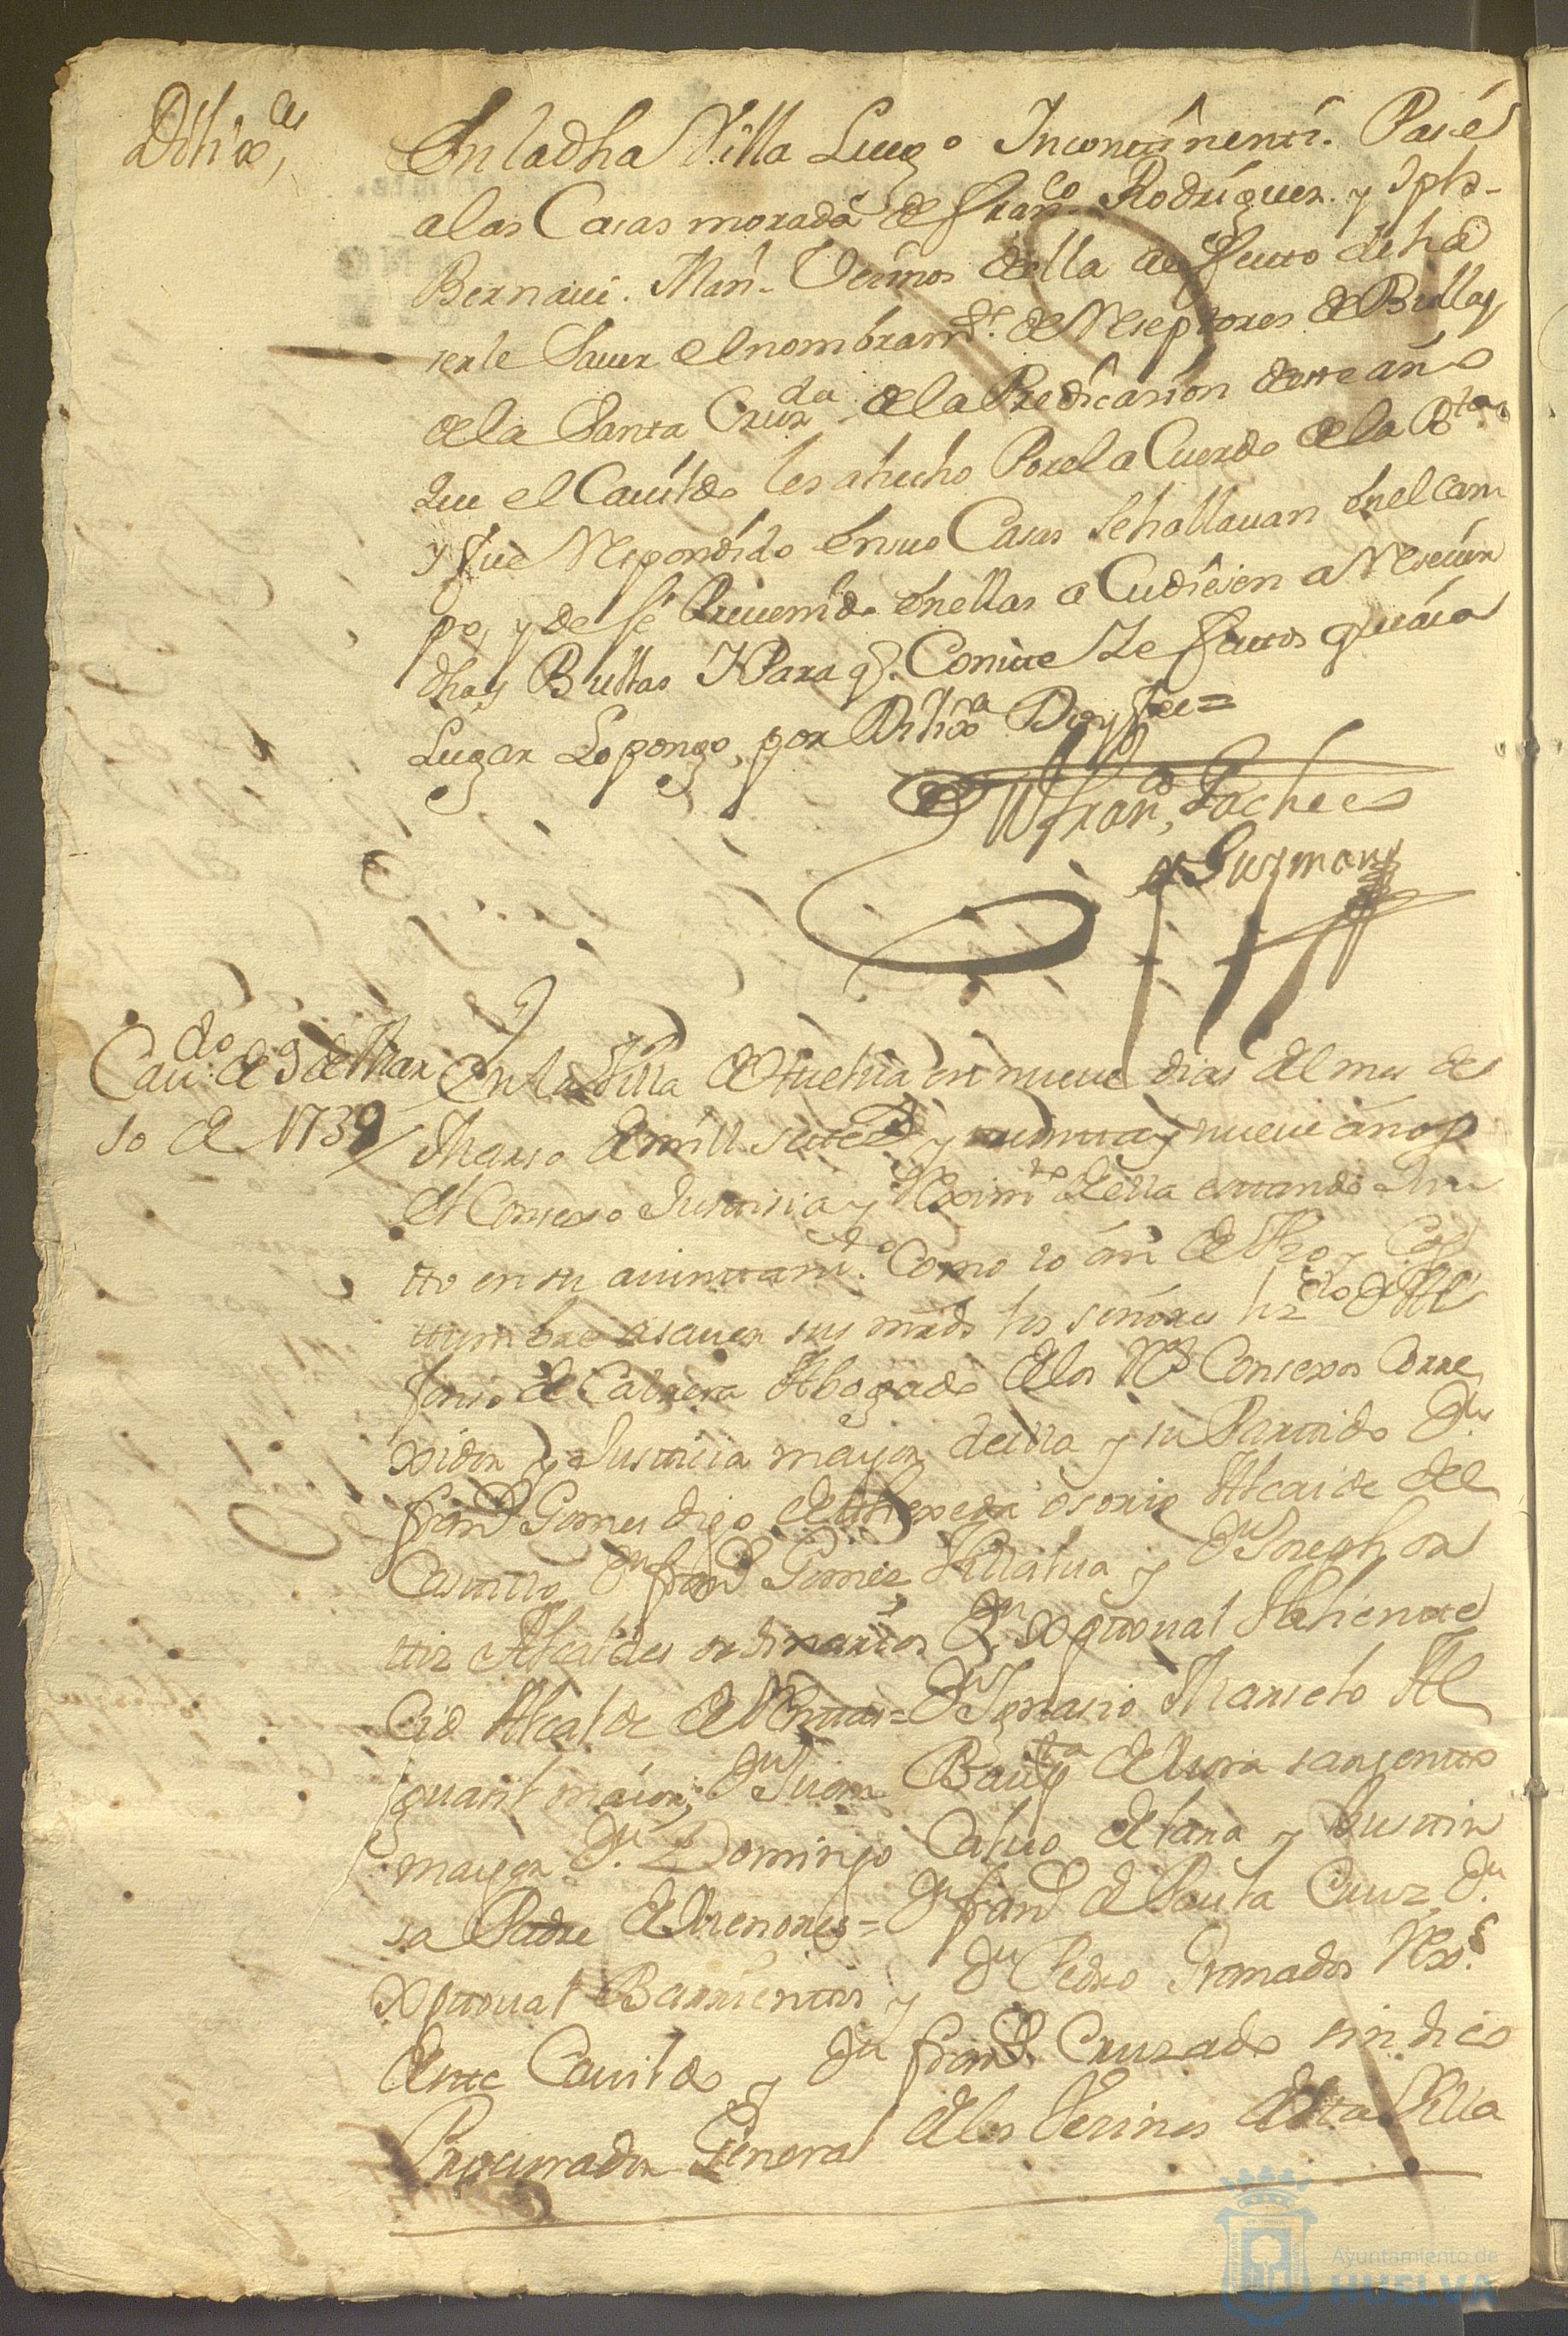 Dilixas
En la dha Villa Luego Incontinenti. Pasé
a las Casas morada de Franco Rodriguez. y
Bernaui. Man. Vecinos della a efecto de ha
serle Sauer el nombramto. de Reseptores de Bullas
de la Santa Cruzda de la Predicasion deste año
que el Cauildo les a hecho Por el a Cuerdo de la
y fue Respondido en sus Casas Se hallauan en el cam
po, y de fe Preuenido en ellas a Cudiesen a Reseuir
dhas Bullas Y Para q. Conste Ze efectos q
Lugar Lo pongo, por Dilixa Doy fee=
Franco, Pacheco
y Guzman
Caudo. de 9 de Mar
so de 1739
En la Villa de Huelua en nueue dias del mes de
Marso de mill setecs y treinta y nueue años
el Consexo Justisia y Reximto della estando Jun
tto en su aiuntamto. Como lo an de Vso y Cos
ttumbre asauer sus mrds los señores lizdo Dn Al
fonso de Cabrera Abogado de los Rs Consexos Corre
xidor y Justicia mayor de illa y su Partido Dn
franco Gomes digo de Osorio Alcaide del
Castillo Dn franco Gomes Villalua y Dn Joseph or
ttiz Alcaldes ordinarios Dn Xptoual
Cid Alcalde de = Dn Ygnasio Marselo Al
guasil maior; Dn Juan Bauta de lora sarjento
mayor Dn. Domingo Caluo de lara y
sa Padre de Menores= Dn franco de Paula Cruz Dn
Xptoual Barrientos y Dn Pedro Granados Rexs
deste Cauildo y Dn franco Cruzado sindico
Procurador General de los Vecinos desta Villa
Ayuntamiento de
HUELVA